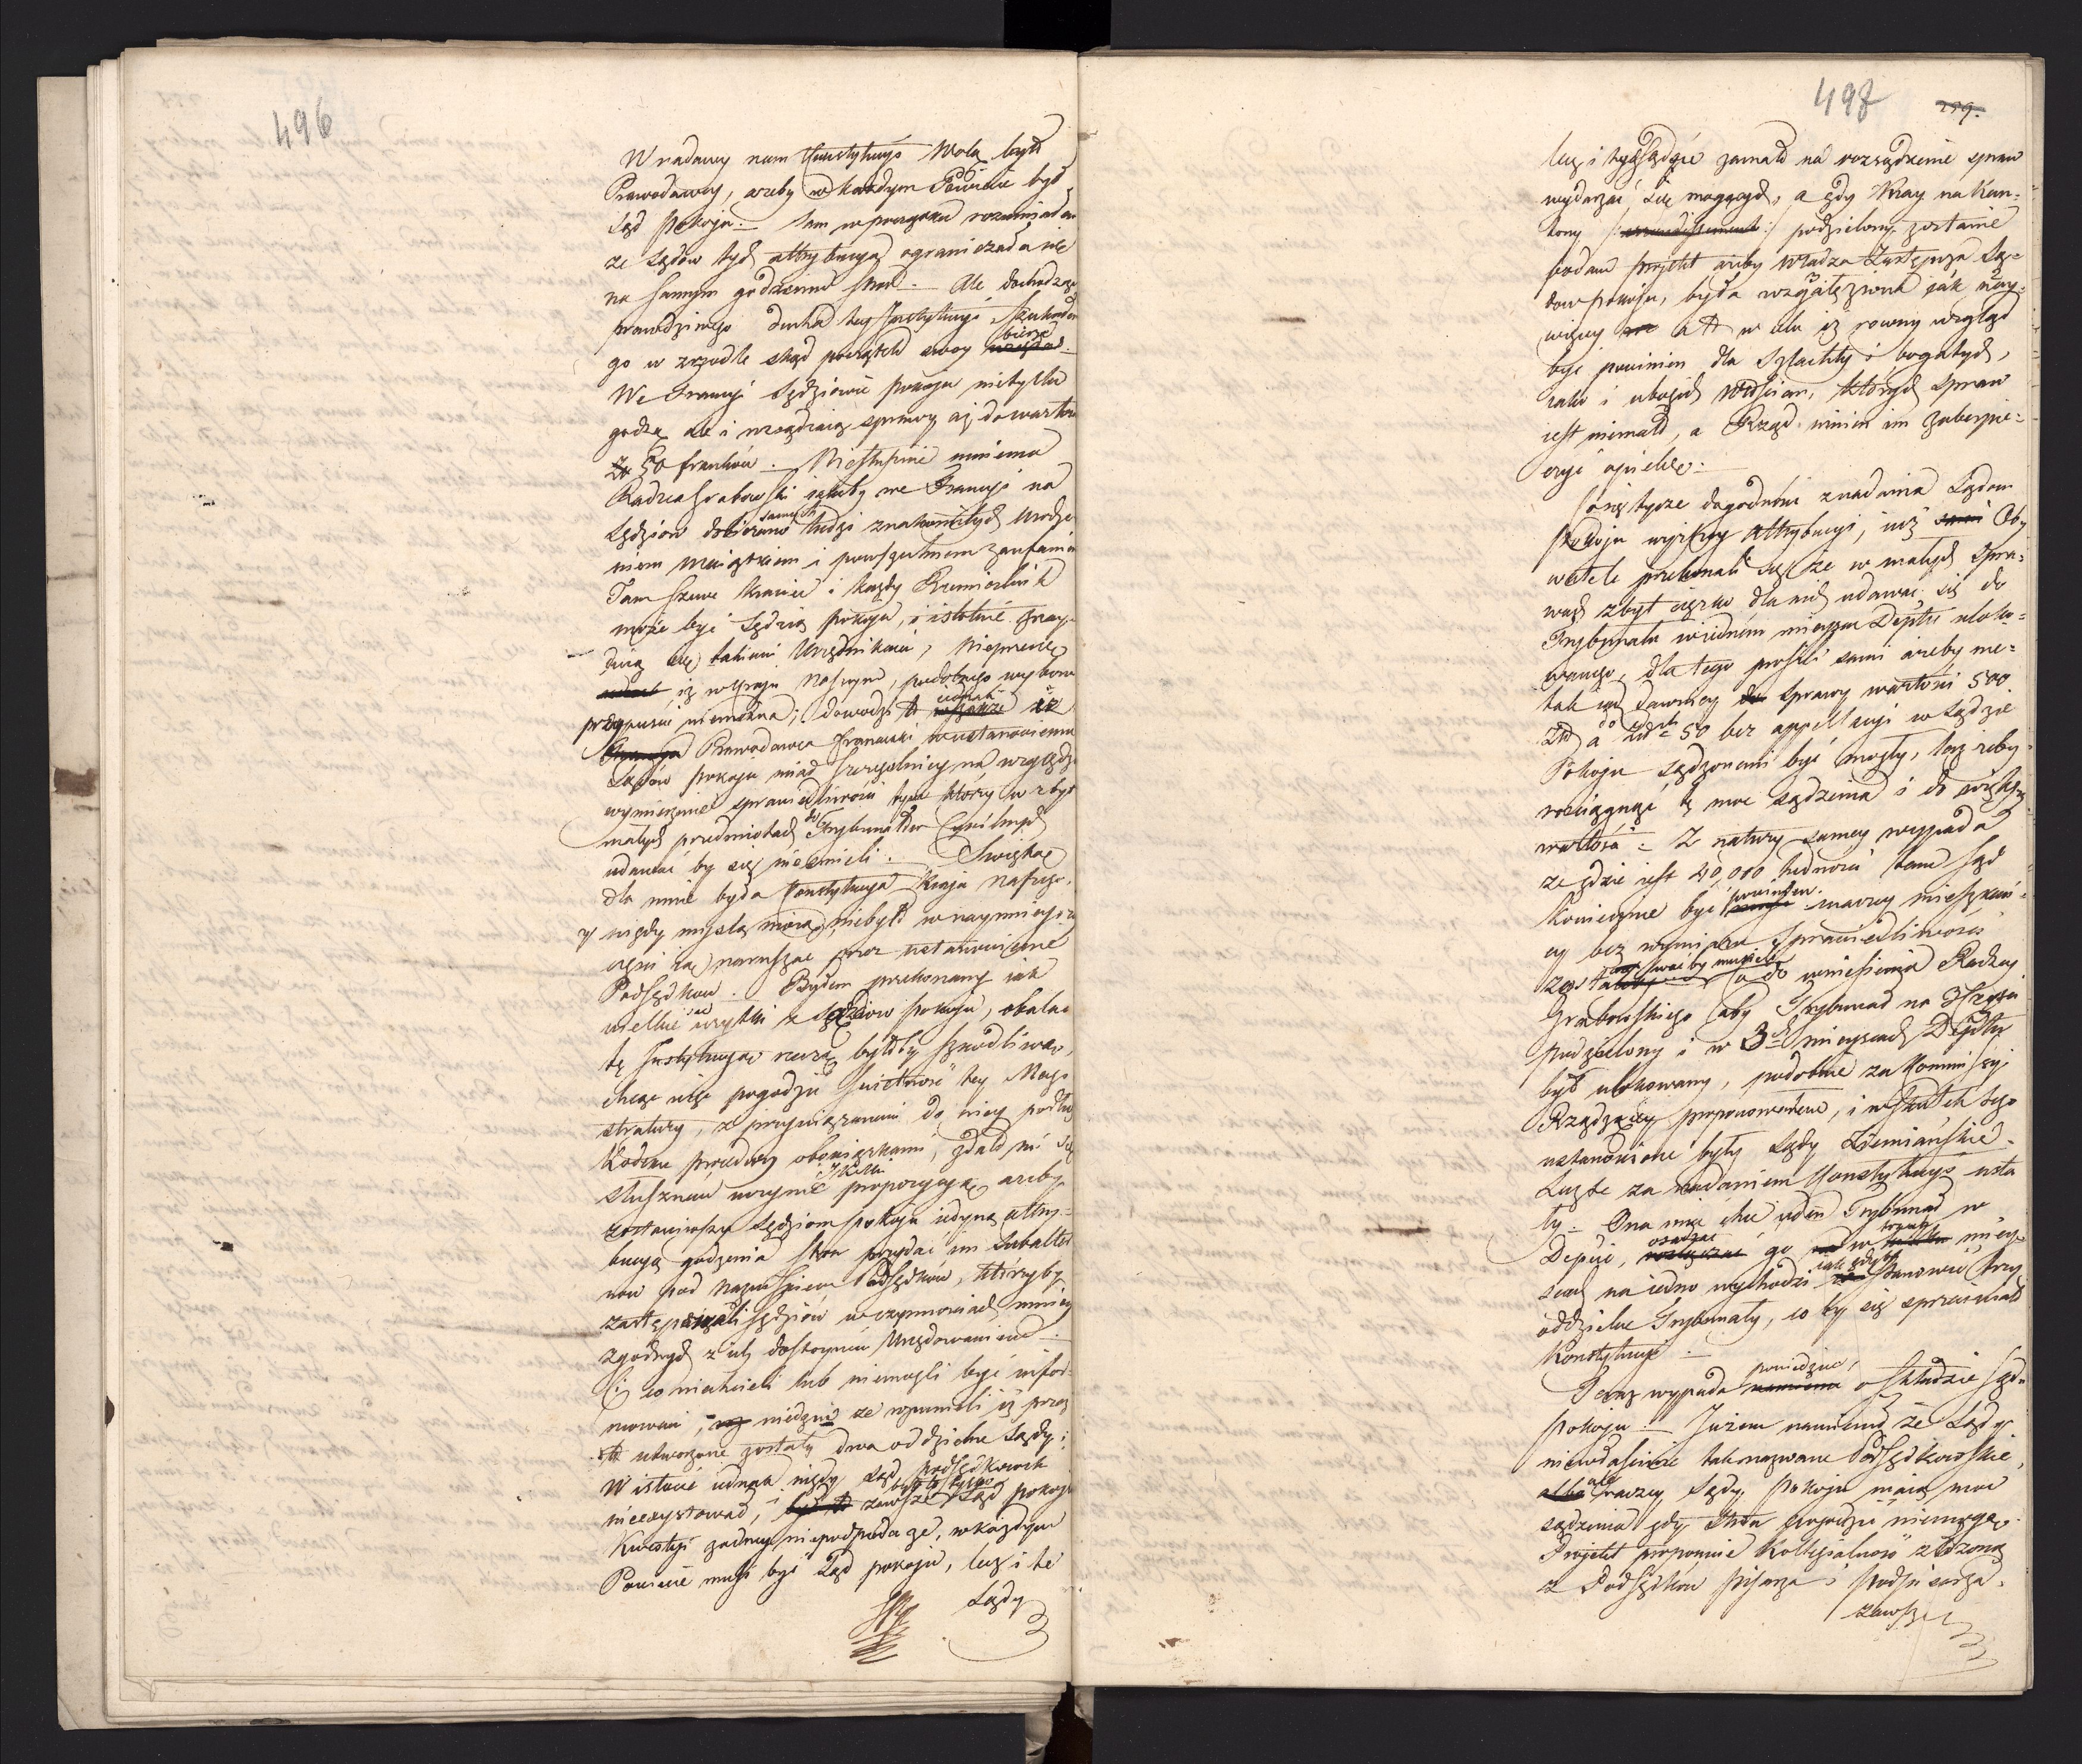 496
W nadaney nam Konstytucyi Wolą było
Prawodawcy, ażeby w każdym Powiecie był
Sąd pokoju. – Sam w początku rozumiałem
ze Sądów tych attrybucya ograniczała się
na samym godzeniu stron. – Ale dochodząc
prawdziwego ducha tey Instytucyi szukałem
go w zrzodle skąd początek swoy bierze
We Francyi Sędziowie pokoju nietylko
godzą ale i rozsądzaią sprawy aż do wartości
50 franków. – Niesłusznie mniema
Radca Grabowski iakoby we Francyi na
Sędziów dobierano samych ludzi znakomitych urodze
niem maiątkiem i powszechnem zaufaniem
Tam Szewc Krawiec i każdy Rzemieślnik
może być Sędzią pokoju, i istotnie znay-
duią się takiemi Urzędnikami, Nieprzeczę
iż w kraju naszym, podobnego wyboru
przypuścić niemożna; dowodzi to iednak iż
Prawodawca francuski w ustanowieniu
Sądów pokoju miał szczegolniey na względzie
wymierzenie sprawiedliwości tym którzy w zbyt
małych przedmiotach do Trybunałów Cywilnych
udawać by się niemieli. – Swiętą
dla mnie była Konstytucya Kraju naszego,
nigdy myślą moią niebyło w naymnieysze
części ią naruszać przez ustanowienie
Podsędków. Byłem przekonany iak
wielkie są użytki z Sądów pokoju, obalać
tę Instytucyę rzeczą byłoby szkodliwą,
chcąc więc pogodzić świetność tey Magi
stratury, z przywiązanemi do niey podług
Kodexu procedury obowiązkami, zdało mi się
słusznem uczynić proporzycyą ażeby
zostawiwszy Sędziom pokoju iedyną attry-
bucyą godzenia stron przydać im Subalter
now pod nazwiskiem Podsędków, którzyby
zastępowali sędziów w czynnościach mniey
zgodnych z ich dostoynem Urzędowaniem –
Ci co niechcieli lub niemogli być infor-
mowani, niedziw ze rozumieli iż przez
to utworzone zostały dwa oddzielne Sądy;
W istocie iednak nigdy Sąd Podsędkowski
nieexystował, i był to tylko zawsze Sąd pokoju
Kwestyi zadney niepodpada ze, w każdym
Powiecie musi być Sąd pokoju, lecz i te
Sądy
498
259.
lecz i tych Sędzie zamało na rozsądzenie spraw
wydarzać się mogących, a gdy Kray na Kan-
tony /: arondissement :/ podzielony zostanie
podam proiekt ażeby władza Zastępcza Są-
dow pokoju, była rozgałęziona iak nay-
więcey a to w celu iż rowny wzgląd
być powinien dla Szlachty i bogatych,
iako i ubogich Włościan, ktorych spraw
iest niemało, a Rząd winien im zabezpie-
czyć opiekę. –
Co się tycze dogodności z nadania Sądom
Pokoju wyższey attrybucyi, iuż Oby
watele przekonali się że w małych spra-
wach zbyt ciężko dla nich udawać się do
Trybunału w iednem mieyscu Deptu uloko-
wanego, dla tego prosili sami ażeby nie-
tak iak dawniey sprawy wartości 500
Złł a do Złł 50 bez appellacyi w Sądzie
Pokoju sądzonemi być mogły, lecz żeby
rozciągnąć tę moc sądzenia i do większey
wartości – Z natury samey wypada
ze gdzie iest 40,000 ludności tam Sąd
Koniecznie być powinien inaczey mieszkań-
cy bez wymiaru sprawiedliwości
zostawać by musieli. Co do wniesienia Radzcy
Grabowskiego aby Trybunał na 3 Sekcye
podzielony i w 3ch mieyscach Deptu
był ulokowany, podobnie za Kommissyi
Rządzącey proponowałem, i w skutek tego
ustanowione były Sądy Ziemiańskie
Lecz te za nadaniem Konstytucyi usta
ły – Ona mieć chce ieden Trybunał w
Depcie, osadzać go w trzech miey-
scach na iedno wychodzi iak gdyby stanowić trzy
oddzielne Trybunały, co by się sprzeciwiało
Konstytucyi –
Teraz wypada powiedzieć, o składzie Sądu
pokoju – Jużem namienił że Sądy
niewłaściwie tak nazwane Podsędkowskie,
ale raczey Sądy Pokoju maią moc
sądzenia gdy stron pogodzić niemogą.
Projekt proponuie Kollegialność złożoną
z Podsędków Pisarza i Podpisarza.
zawsze